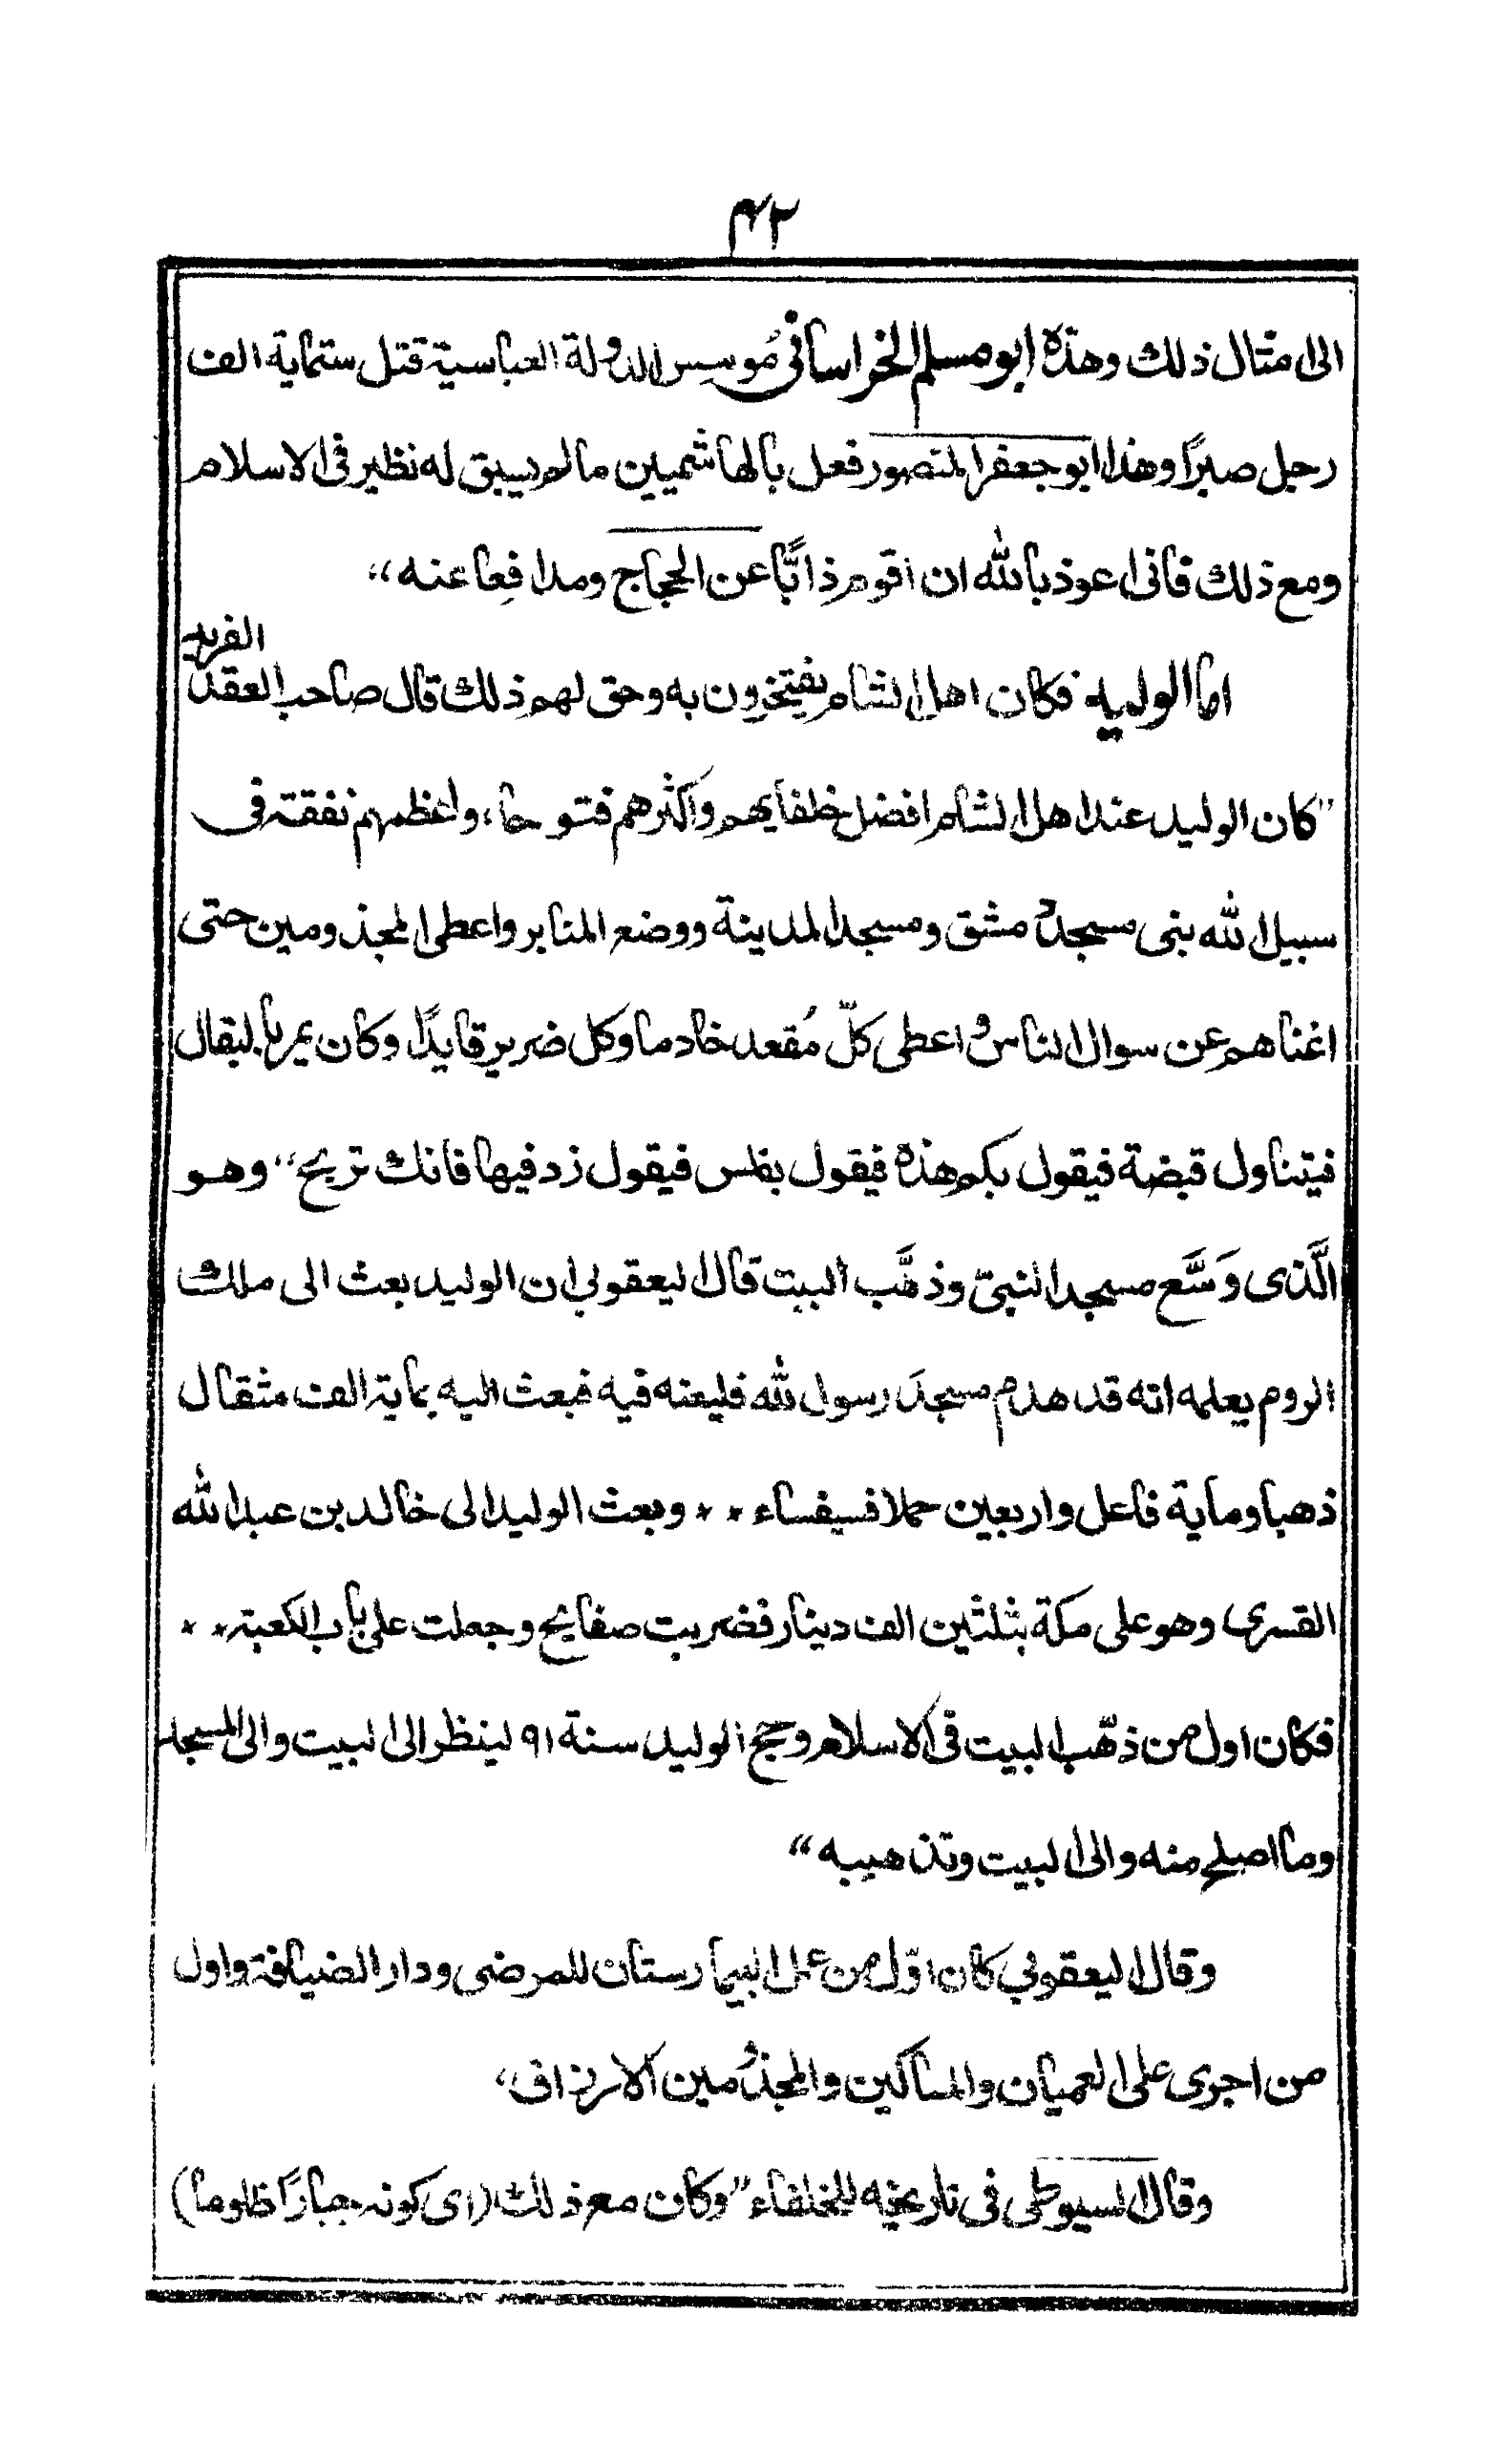 ۴۲
الى امثال ذلك وهذه ابو مسلم الخراسانى مُوسِس الدولة العباسية قتل ستماية الف
رجل صبراً وهذا ابو جعفر المنصور فعل بالهاشميين مالم يسبق له نظير فى الاسلام
ومع ذلك فانى اعوذ بالله ان اقوم ذابًّا عن الحجاج ومدافِعا عنه“
اما الوليد فكان اهل الشام يفتخرون به وحق لهم ذلك قال صاحب العقد الفريد
”كان الوليد عند اهل الشام افضل خلفايهم واكثرهم فتوحا، واعظمهم نفقة فى
سبيل الله بنى مسجد دمشق ومسجد المدينة ووضع المنابر واعطى المجذومين حتى
اغناهم عن سوال الناس واعطى كلّ مُقعد خادما وكل ضرير قايدًا وكان يمر بالبقال
فيتناول قبضة فيقول بكم هذه فيقول بفلس فيقول زد فيها فانك تربح“ وهو
الَّذى وَسَّع مسجد النبىّ وذهَّب البيت قال اليعقوبي ان الوليد بعث الى ملك
الروم يعلمه انه قد هدم مسجدَ رسول الله فليعنه فيه فبعث اليه بماية الف مثقال
ذهبا وماية فاعل واربعين حملا فسيفساء ** وبعث الوليد الى خالد بن عبد الله
القسرى وهو على مكة بثلثين الف دينار فضربت صفايح وجعلت على باب الكعبة **
فكان اول من ذهّب البيت فى الاسلام وحج الوليد سنة ٩١ لينظر الى البيت والى المسجد
وما اصلح منه والى البيت وتذهيبه“
وقال اليعقوبي كان اوّل من عمل البيمارستان للمرضى ودار الضيافة واول
من اجرى على العميان والمساكين والمجذُومين الارزاق،
وقال السيوطى فى تاريخه للخلفاء ”وكان مع ذلك (اى كونه جبارًا ظلوما)